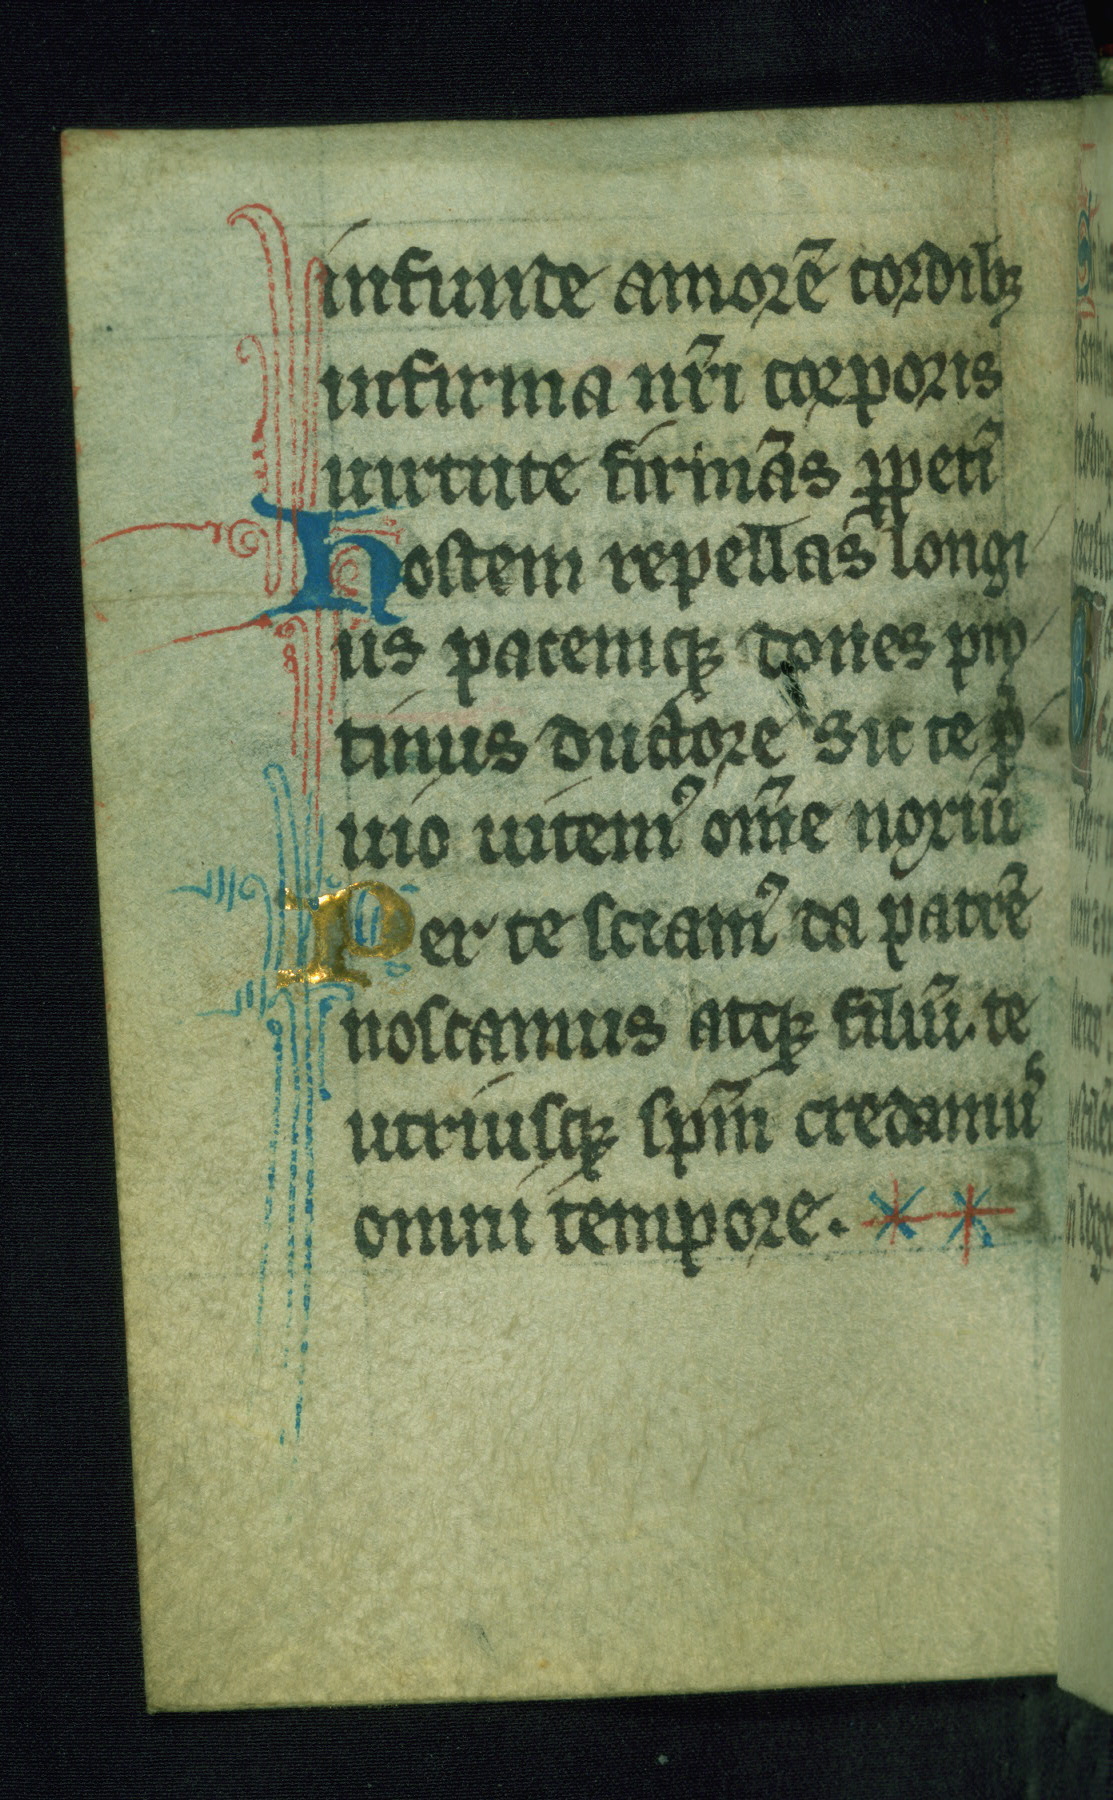 infunde amorē cordibꝫ
infirma nr̄i corporis
uirtute firmās ꝑpeti
hostem repellas longi
us pacemqꝫ dones pro
tinus ductore sic te p̄
uio uitemꝰ om̄e noxiū
Per te sciamꝰ da patrē
noscamus atqꝫ filiū te
utriusqꝫ sp̄m credamuˢ
omni tempore.